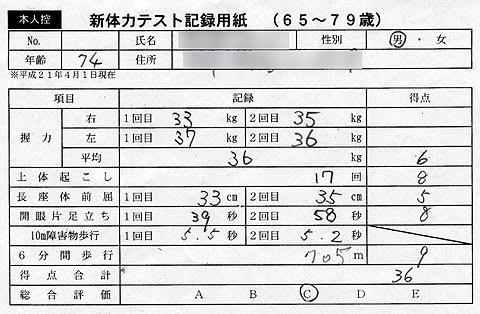 本人控 新体力テスト記録用紙 (65～79歳)
No. 氏名 性別 男・女
年齢 74 住所
※平成21年4月1日現在
項目 記録 得点
握力 右 1回目 33 kg 2回目 35 kg
左 1回目 37 kg 2回目 36 kg
平均 36 kg 6
上体起こし 17 回 8
長座体前屈 1回目 33 cm 2回目 35 cm 5
開眼片足立ち 1回目 39 秒 2回目 58 秒 8
10m障害物歩行 1回目 5.5 秒 2回目 5.2 秒
6分間歩行 705 m 9
得点合計 36
総合評価 A B C D E